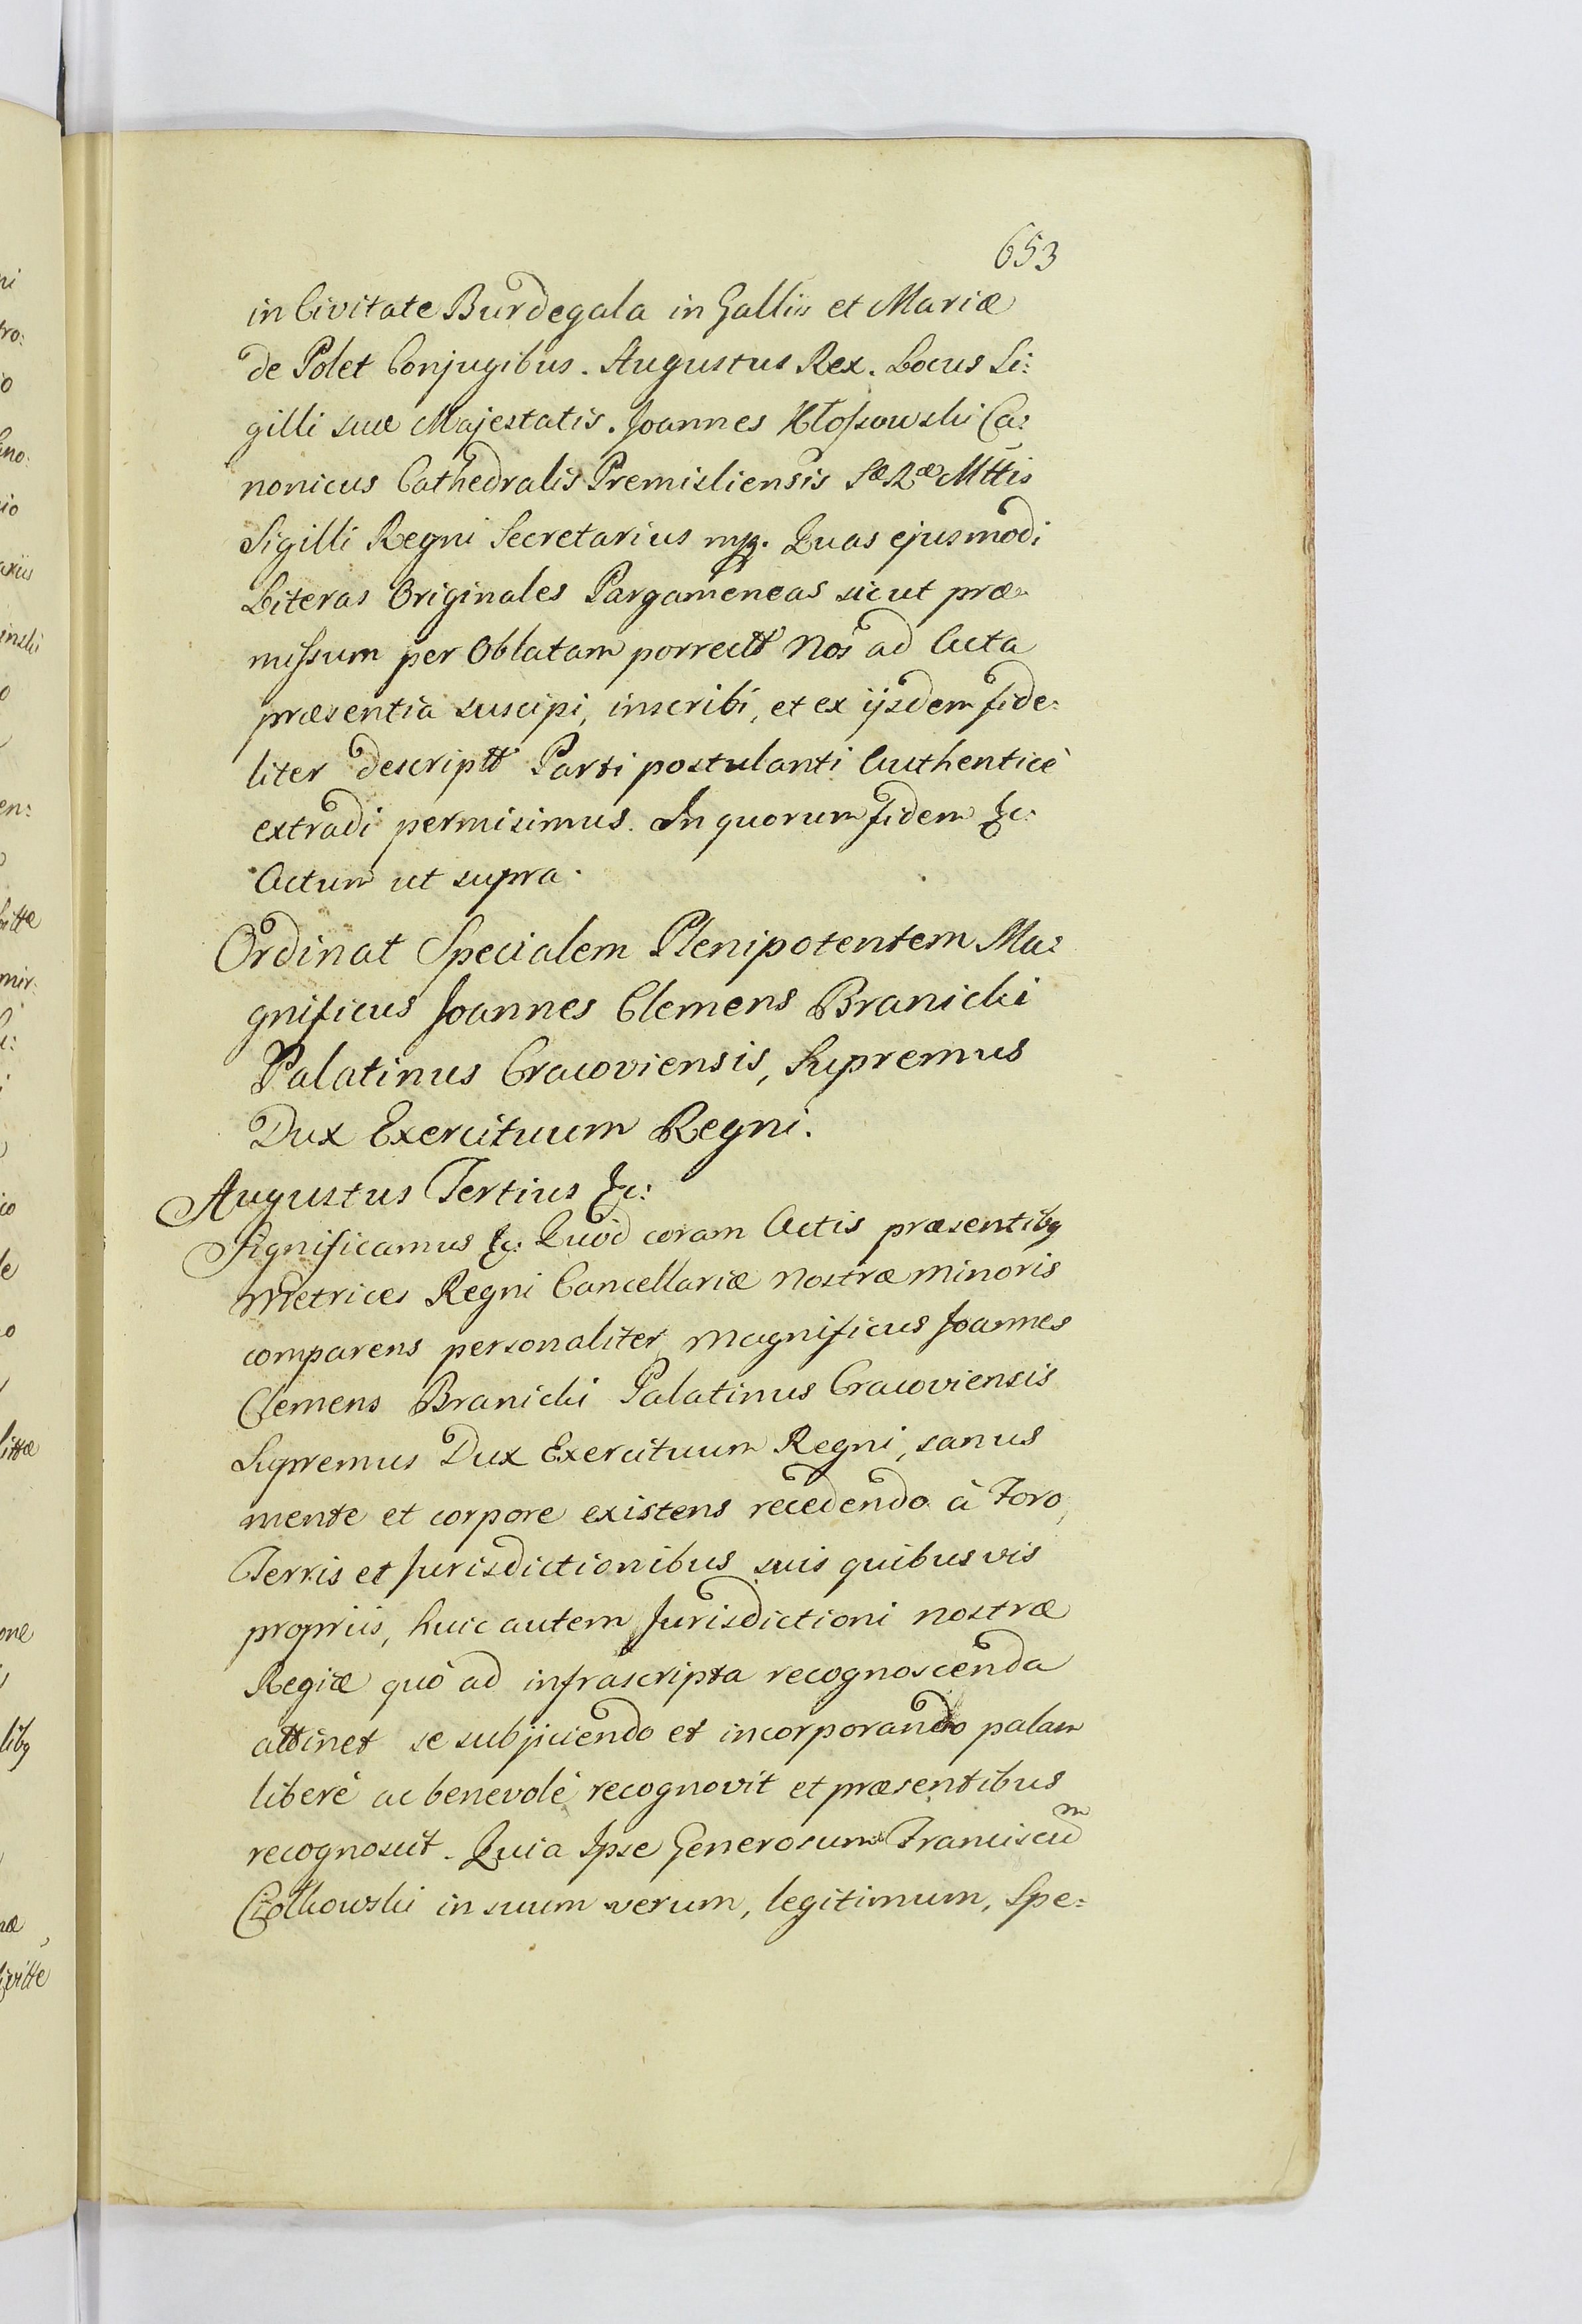 653
in Civitate Burdegala in Gallijs et Mariæ
de Polet Conjugibus. Augustus Rex. Locus Si:
gilli suæ Majestatis. Joannes Kłoſsowski Ca:
nonicus Cathedralis Premisliensis Sæ Ræ Mttis
Sigilli Regni Secretarius mp. Quas ejusmodi
Literas Originales Pargameneas sicut præ-
miſsum per Oblatam porrectt Nos ad Acta
præsentia suscipi, inscribi, et ex ijsdem fide:
liter descriptt Parti postulanti Authenticè
extradi permisimus. In quorum fidem &c:
Actum ut supra.
Ordinat Specialem Plenipotentem Ma:
gnificus Joannes Clemens Branicki
Palatinus Cracoviensis, Supremus
Dux Exercituum Regni.
Augustus Tertius &c:
Significamus &c: Quòd coram Actis præsentibq
Metrices Regni Cancellariæ Nostræ Minoris
comparens personaliter Magnificus Joannes
Clemens Branicki Palatinus Cracoviensis
Supremus Dux Exercituum Regni, sanus
mente et corpore existens recedendo à Foro,
Terris et Jurisdictionibus suis quibusvis
proprijs, huic autem Jurisdictioni nostræ
Regiæ quò ad infrascripta recognoscenda
attinet se subjiciendo et incorporando palam
liberè ac benevolè recognovit et præsentibus
recognoscit. Quia Ipse Generosum Franciscum
Czołkowski in suum verum, legitimum, Spe: